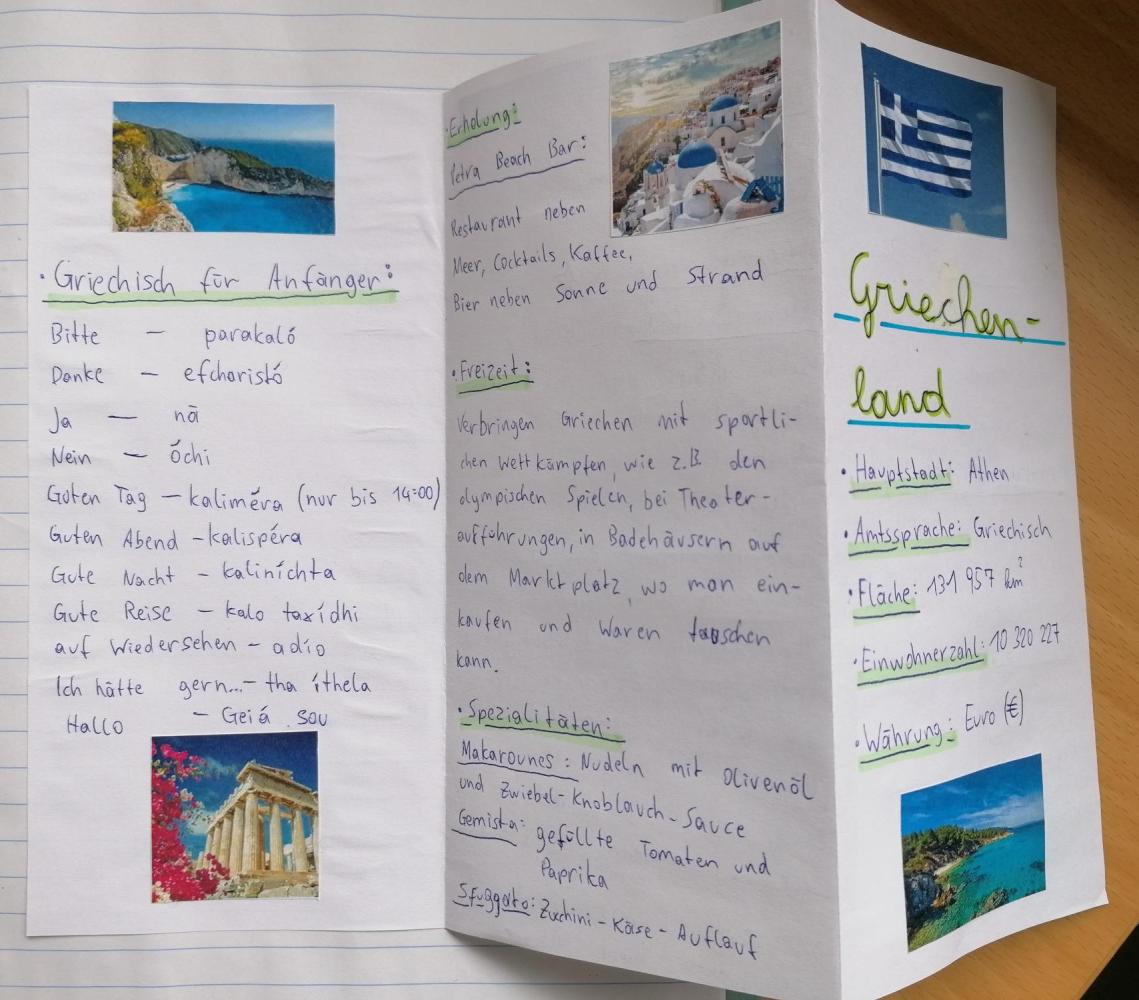 · Griechisch für Anfänger:
Bitte – parakaló
Danke – efcharistó
Ja – nā
Nein – óchi
Guten Tag – kaliméra (nur bis 14:00)
Guten Abend – kalispéra
Gute Nacht – kaliníchta
Gute Reise – kalo taxídhi
auf Wiedersehen – adío
Ich hätte gern... – tha íthela
Hallo – Geiá sou
· Erholung:
Petra Beach Bar:
Restaurant neben
Meer, Cocktails, Kaffee,
Bier neben Sonne und Strand
· Freizeit:
Verbringen Griechen mit sportli-
chen Wettkämpfen, wie z.B. den
olympischen Spielen, bei Theater-
aufführungen, in Badehäusern auf
dem Marktplatz, wo man ein-
kaufen und Waren tauschen
kann.
· Spezialitäten:
Makarounes: Nudeln mit Olivenöl
und Zwiebel-Knoblauch-Sauce
Gemista: gefüllte Tomaten und
Paprika
Sfuggato: Zuchini-Käse-Auflauf
Griechen-
land
· Hauptstadt: Athen
· Amtssprache: Griechisch
· Fläche: 131 957 km²
· Einwohnerzahl: 10 320 227
· Währung: Euro (€)